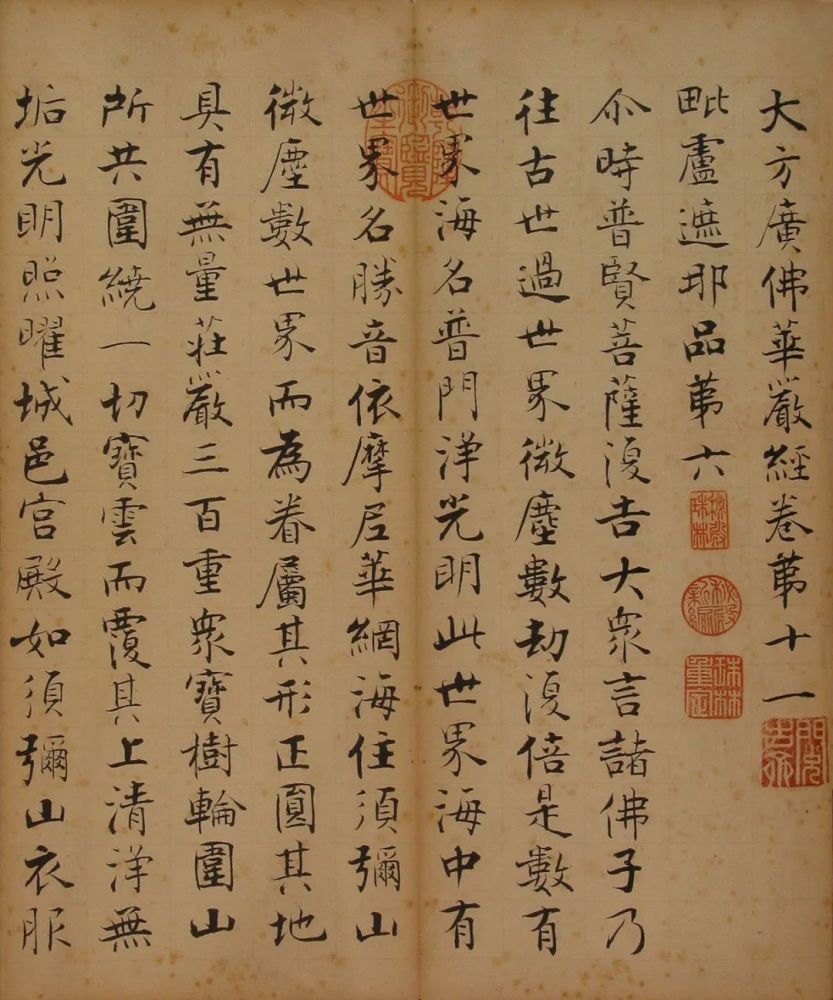 大方廣佛華嚴經卷第十一
毗盧遮那品第六
秘殿珠林
秘殿新編
珠林重定
尒時普賢菩薩復告大衆言諸佛子乃
往古世過世界微塵數劫復倍是數有
世界海名普門淨光明此世界海中有
乾隆御覽之寶
世界名勝音依摩尼華網海住須彌山
微塵數世界而為眷屬其形正圓其地
具有無量莊嚴三百重衆寶樹輪圍山
所共圍繞一切寶雲而覆其上清淨無
垢光明照曜城邑宮殿如須彌山衣服